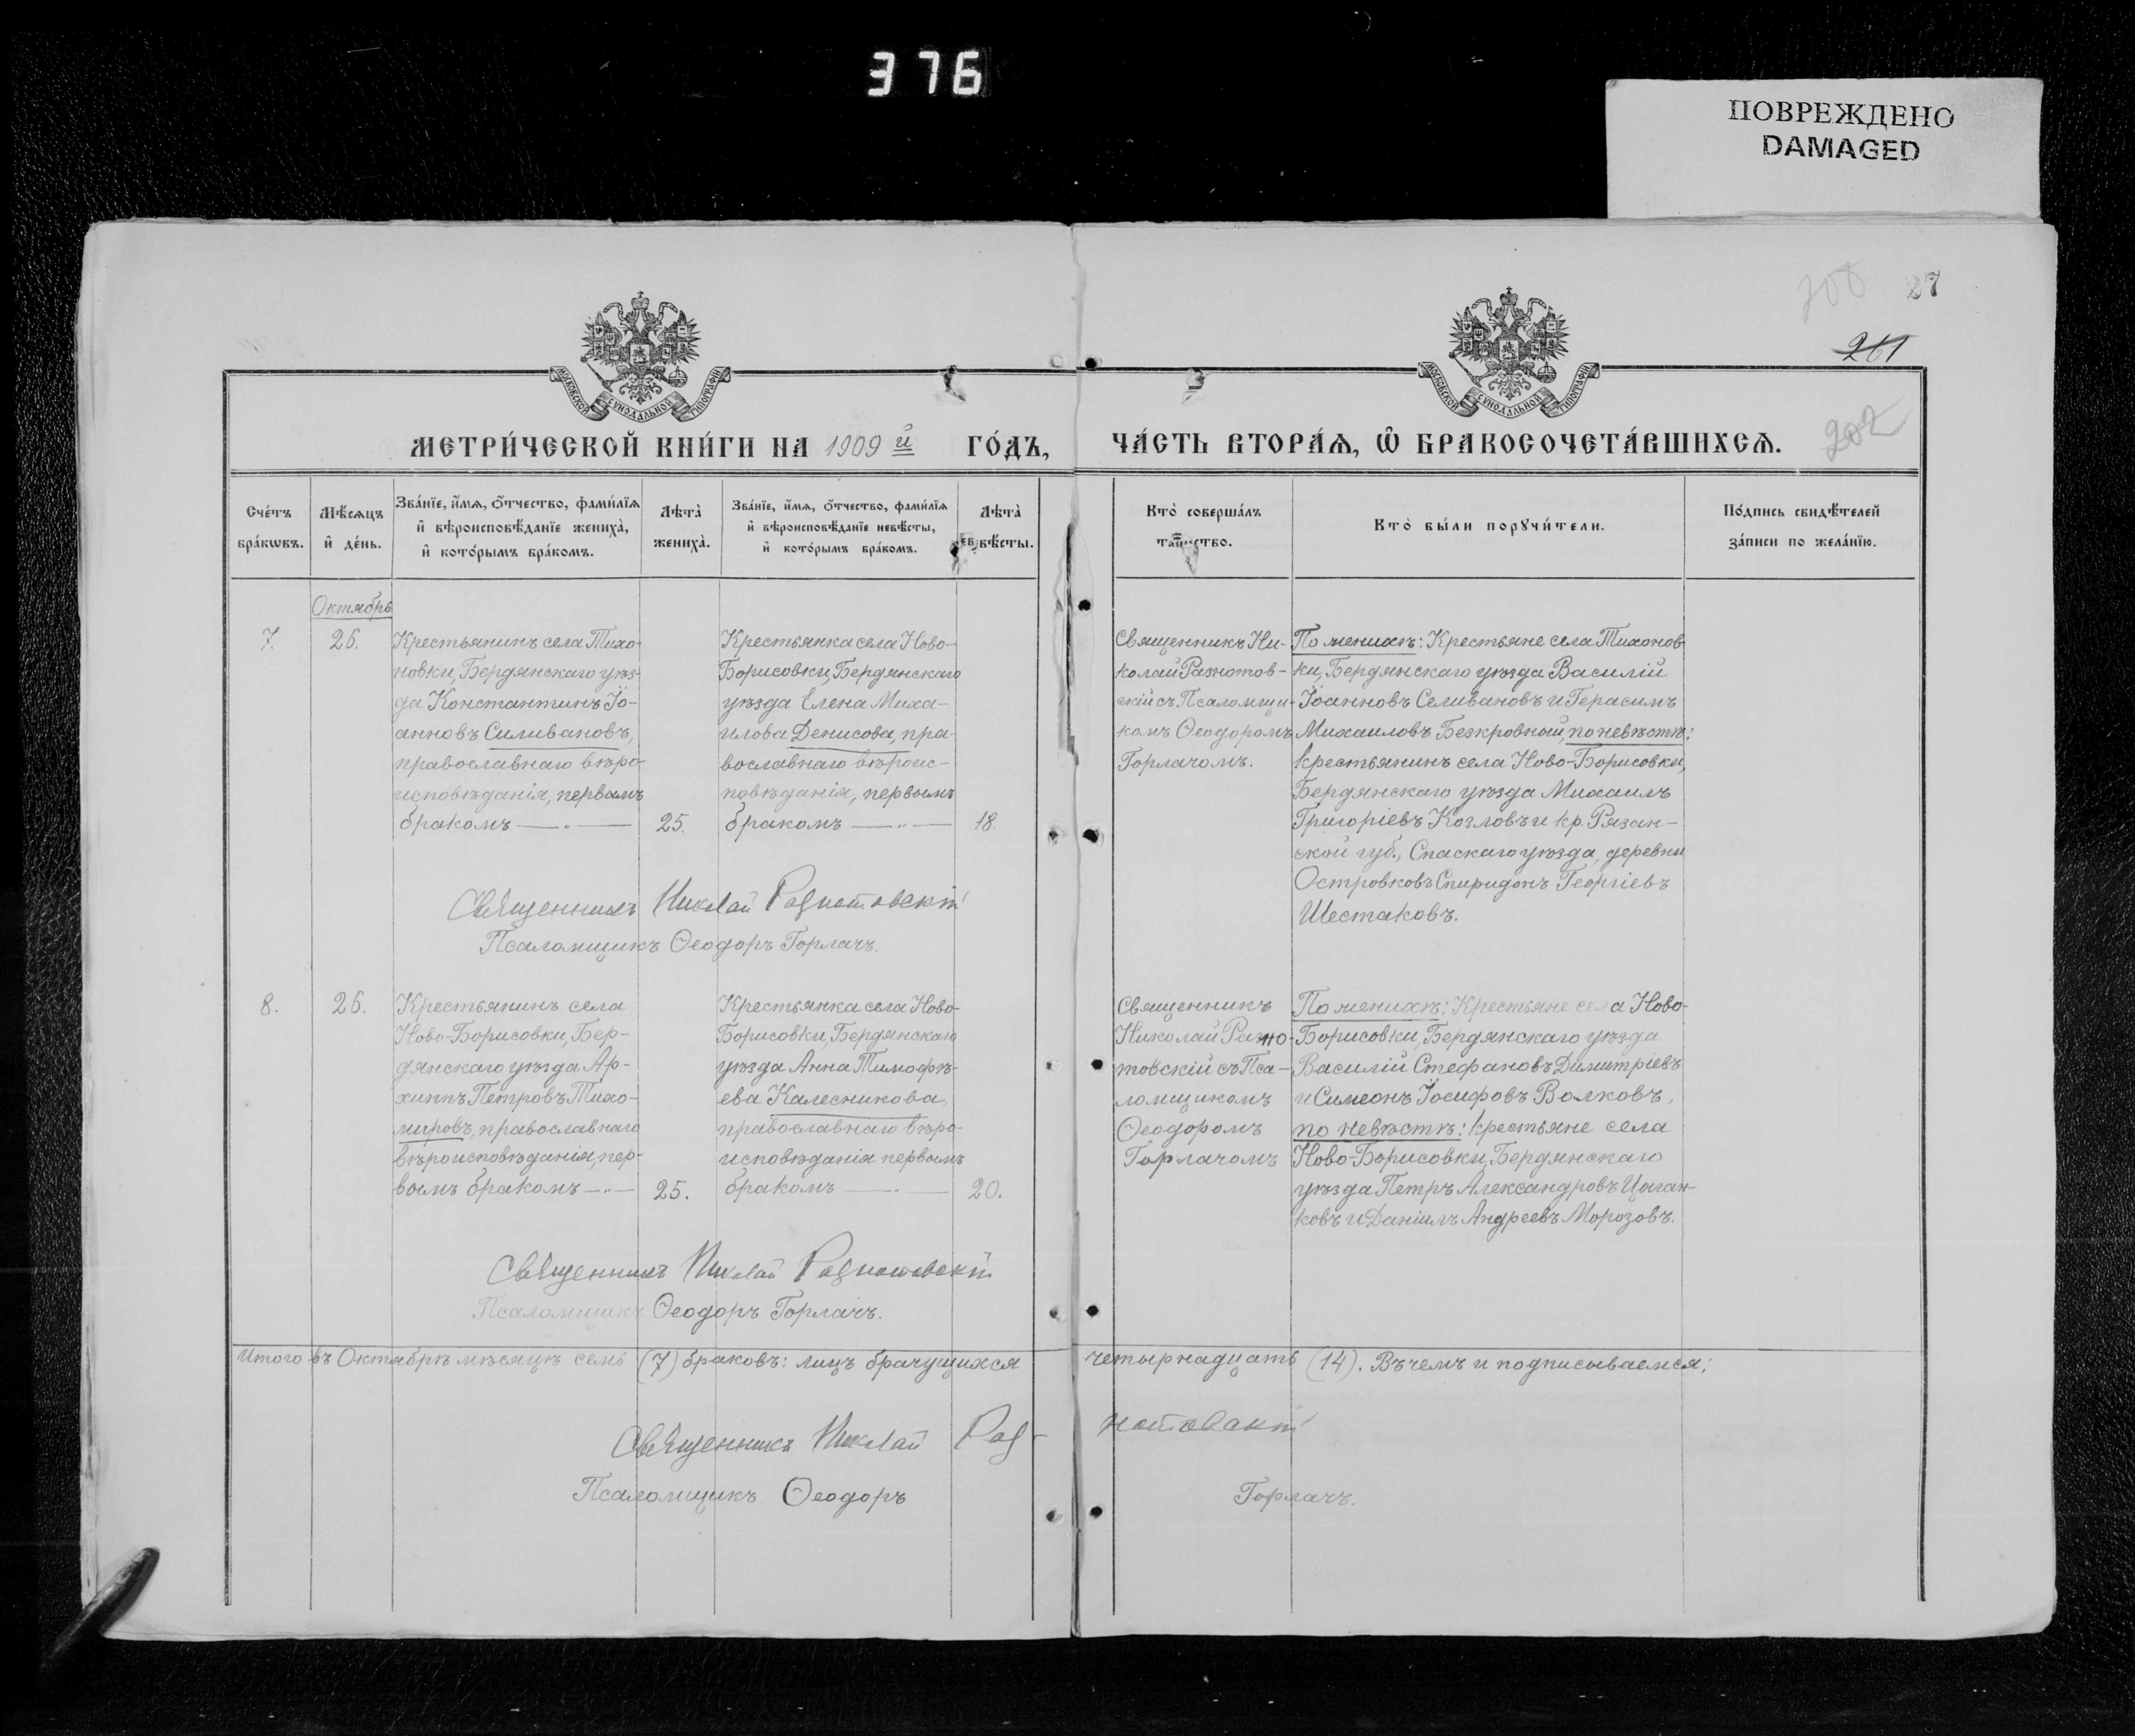 376
ПОВРЕЖДЕНО
DAMAGED
27
261
202
МОСКОВСКОЙ СѴНОДАЛЬНОЙ ТИПОГРАФІИ
МОСКОВСКОЙ СѴНОДАЛЬНОЙ ТИПОГРАФІИ
МЕТРИ́ЧЕСКОЙ КНИ́ГИ НА 1909 й ГО́ДЪ,
ЧА́СТЬ ВТОРА́Ѧ, Ѡ҆ БРАКОСОЧЕТА́ВШИХСѦ.
Сче́тъ
бра́кѡвъ.
Мѣ́сѧцъ
и҆ де́нь.
Зва́нїе, и҆́мѧ, ѻ҆́тчество, фами́лїѧ
и҆ вѣроисповѣ́данїе жениха̀,
и҆ кото́рымъ бра́комъ.
Лѣта̀
жениха̀.
Зва́нїе, и҆́мѧ, ѻ҆́тчество, фами́лїѧ
и҆ вѣроисповѣ́данїе невѣ́сты,
и҆ кото́рымъ бра́комъ.
Лѣта̀
невѣ́сты.
Кто̀ соверша́лъ
таинство.
Кто̀ бы́ли порꙋчи́тели.
По́дпись свидѣ́телей
за́писи по жела́нїю.
Октябрь
7.
26.
Крестьянинъ села Тихо-
новки, Бердянскаго уѣз-
да Константинъ Іо-
анновъ Силивановъ,
православнаго вѣро-
исповѣданія, первымъ
бракомъ
25.
Крестьянка села Ново-
Борисовки, Бердянскаго
уѣзда Елена Миха-
илова Денисова, пра-
вославнаго вѣроис-
повѣданія, первымъ
бракомъ
18.
Священникъ Ни-
колай Разнотов-
скій съ Псаломщи-
комъ Ѳеодоромъ
Горлачомъ.
По женихѣ: Крестьяне села Тихонов-
ки, Бердянскаго уѣзда Василій
Іоанновъ Селивановъ и Герасимъ
Михаиловъ Безкровный, по невѣстѣ:
крестьянинъ села Ново-Борисовки,
Бердянскаго уѣзда Михаилъ
Григоріевъ Козловъ и кр. Рязан-
ской губ., Спаскаго уѣзда, деревни
Островковъ Спиридонъ Георгіевъ
Шестаковъ.
Священникъ Николай Разнотовскій
Псаломщикъ Ѳеодоръ Горлачъ.
8.
26.
Крестьянинъ села
Ново-Борисовки, Бер-
дянскаго уѣзда Ар-
хиппъ Петровъ Тихо-
мировъ, православнаго
вѣроисповѣданія, пер-
вымъ бракомъ
25.
Крестьянка села Ново-
Борисовки, Бердянскаго
уѣзда Анна Тимофѣ-
ева Калесникова,
православнаго вѣро-
исповѣданія первымъ
бракомъ
20.
Священникъ
Николай Разно-
товскій съ Пса-
ломщикомъ
Ѳеодоромъ
Горлачомъ
По женихѣ: Крестьяне села Ново-
Борисовки, Бердянскаго уѣзда
Василій Стефановъ Димитріевъ
и Симеонъ Іосифовъ Волковъ,
по невѣстѣ: крестьяне села
Ново-Борисовки, Бердянскаго
уѣзда Петръ Александровъ Цыган-
ковъ и Даніилъ Андреевъ Морозовъ.
Священникъ Николай Разнотовскій
Псаломщикъ Ѳеодоръ Горлачъ.
Итого въ Октябрѣ мѣсяцѣ семь (7) браковъ: лицъ брачущихся четырнадцать (14). Въ чемъ и подписываемся:
Священникъ Николай Раз-нотовскій
Псаломщикъ Ѳеодоръ Горлачъ.